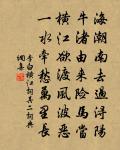 海潮南去過潯陽
牛渚由來險馬當
橫江欲渡風波惡
一水牽愁萬里長
李白橫江詞其二詞典